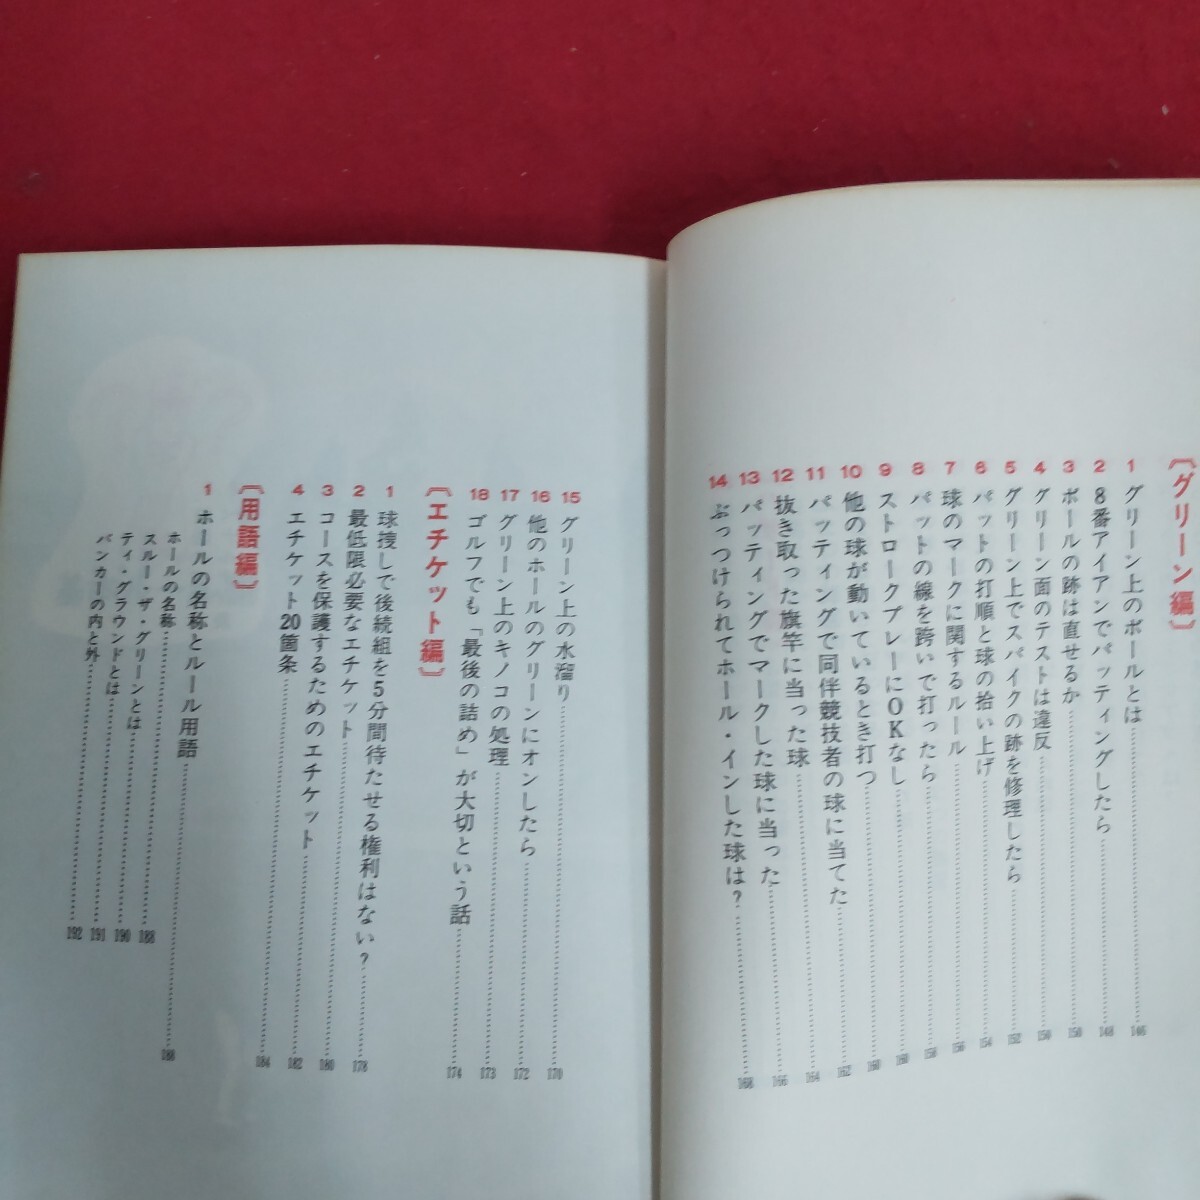 〔グリーン編〕
1 グリーン上のボールとは………146
2 8番アイアンでパッティングしたら………148
3 ボールの跡は直せるか………150
4 グリーン面のテストは違反………150
5 グリーン上でスパイクの跡を修理したら………152
6 パットの打順と球の拾い上げ………154
7 球のマークに関するルール………156
8 パットの線を跨いで打ったら………158
9 ストロークプレーにOKなし………160
10 他の球が動いているとき打つ………160
11 パッティングで同伴競技者の球に当てた………162
12 抜き取った旗竿に当った球………164
13 パッティングでマークした球に当った………166
14 ぶっつけられてホール・インした球は？………168
15 グリーン上の水溜り………170
16 他のホールのグリーンにオンしたら………172
17 グリーン上のキノコの処理………173
18 ゴルフでも「最後の詰め」が大切という話………174
〔エチケット編〕
1 球捜しで後続組を5分間待たせる権利はない？………178
2 最低限必要なエチケット………180
3 コースを保護するためのエチケット………182
4 エチケット20箇条………184
〔用語編〕
1 ホールの名称とルール用語………188
ホールの名称………188
スルー・ザ・グリーンとは………188
ティ・グラウンドとは………190
バンカーの内と外………192
191